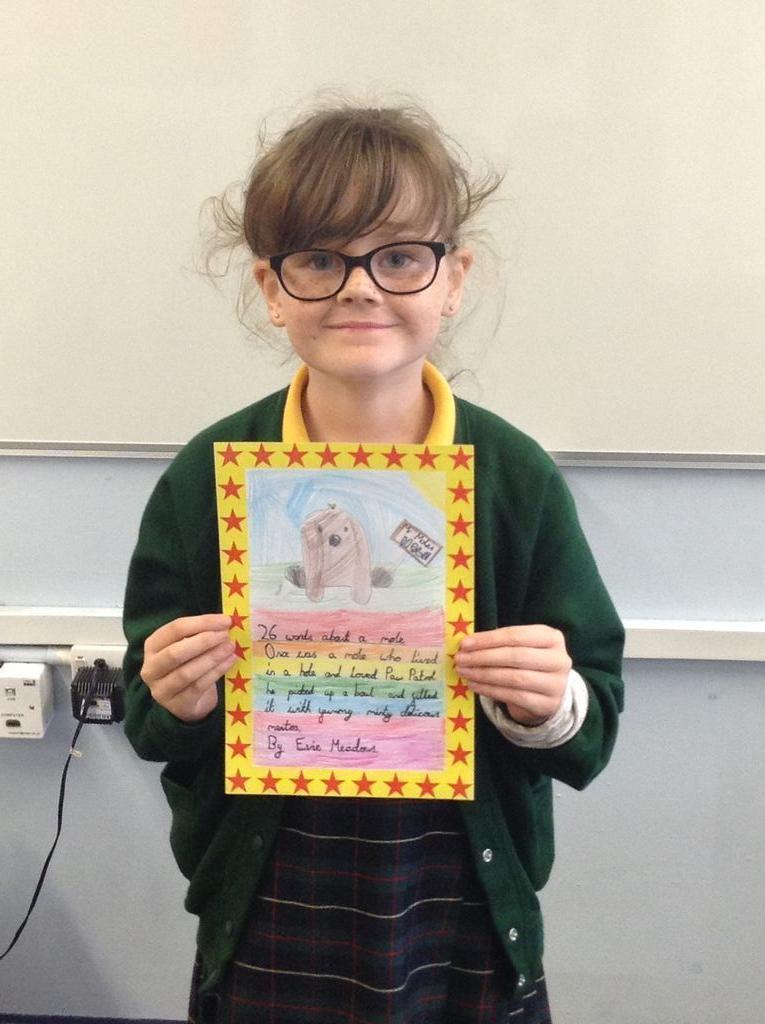 26 words about a mole
Once was a mole who lived
in a hole and loved Paw Patrol
he picked up a bowl and filled
it with yummy minty delicious
mentos
By Evie Meadows
COMPUTER